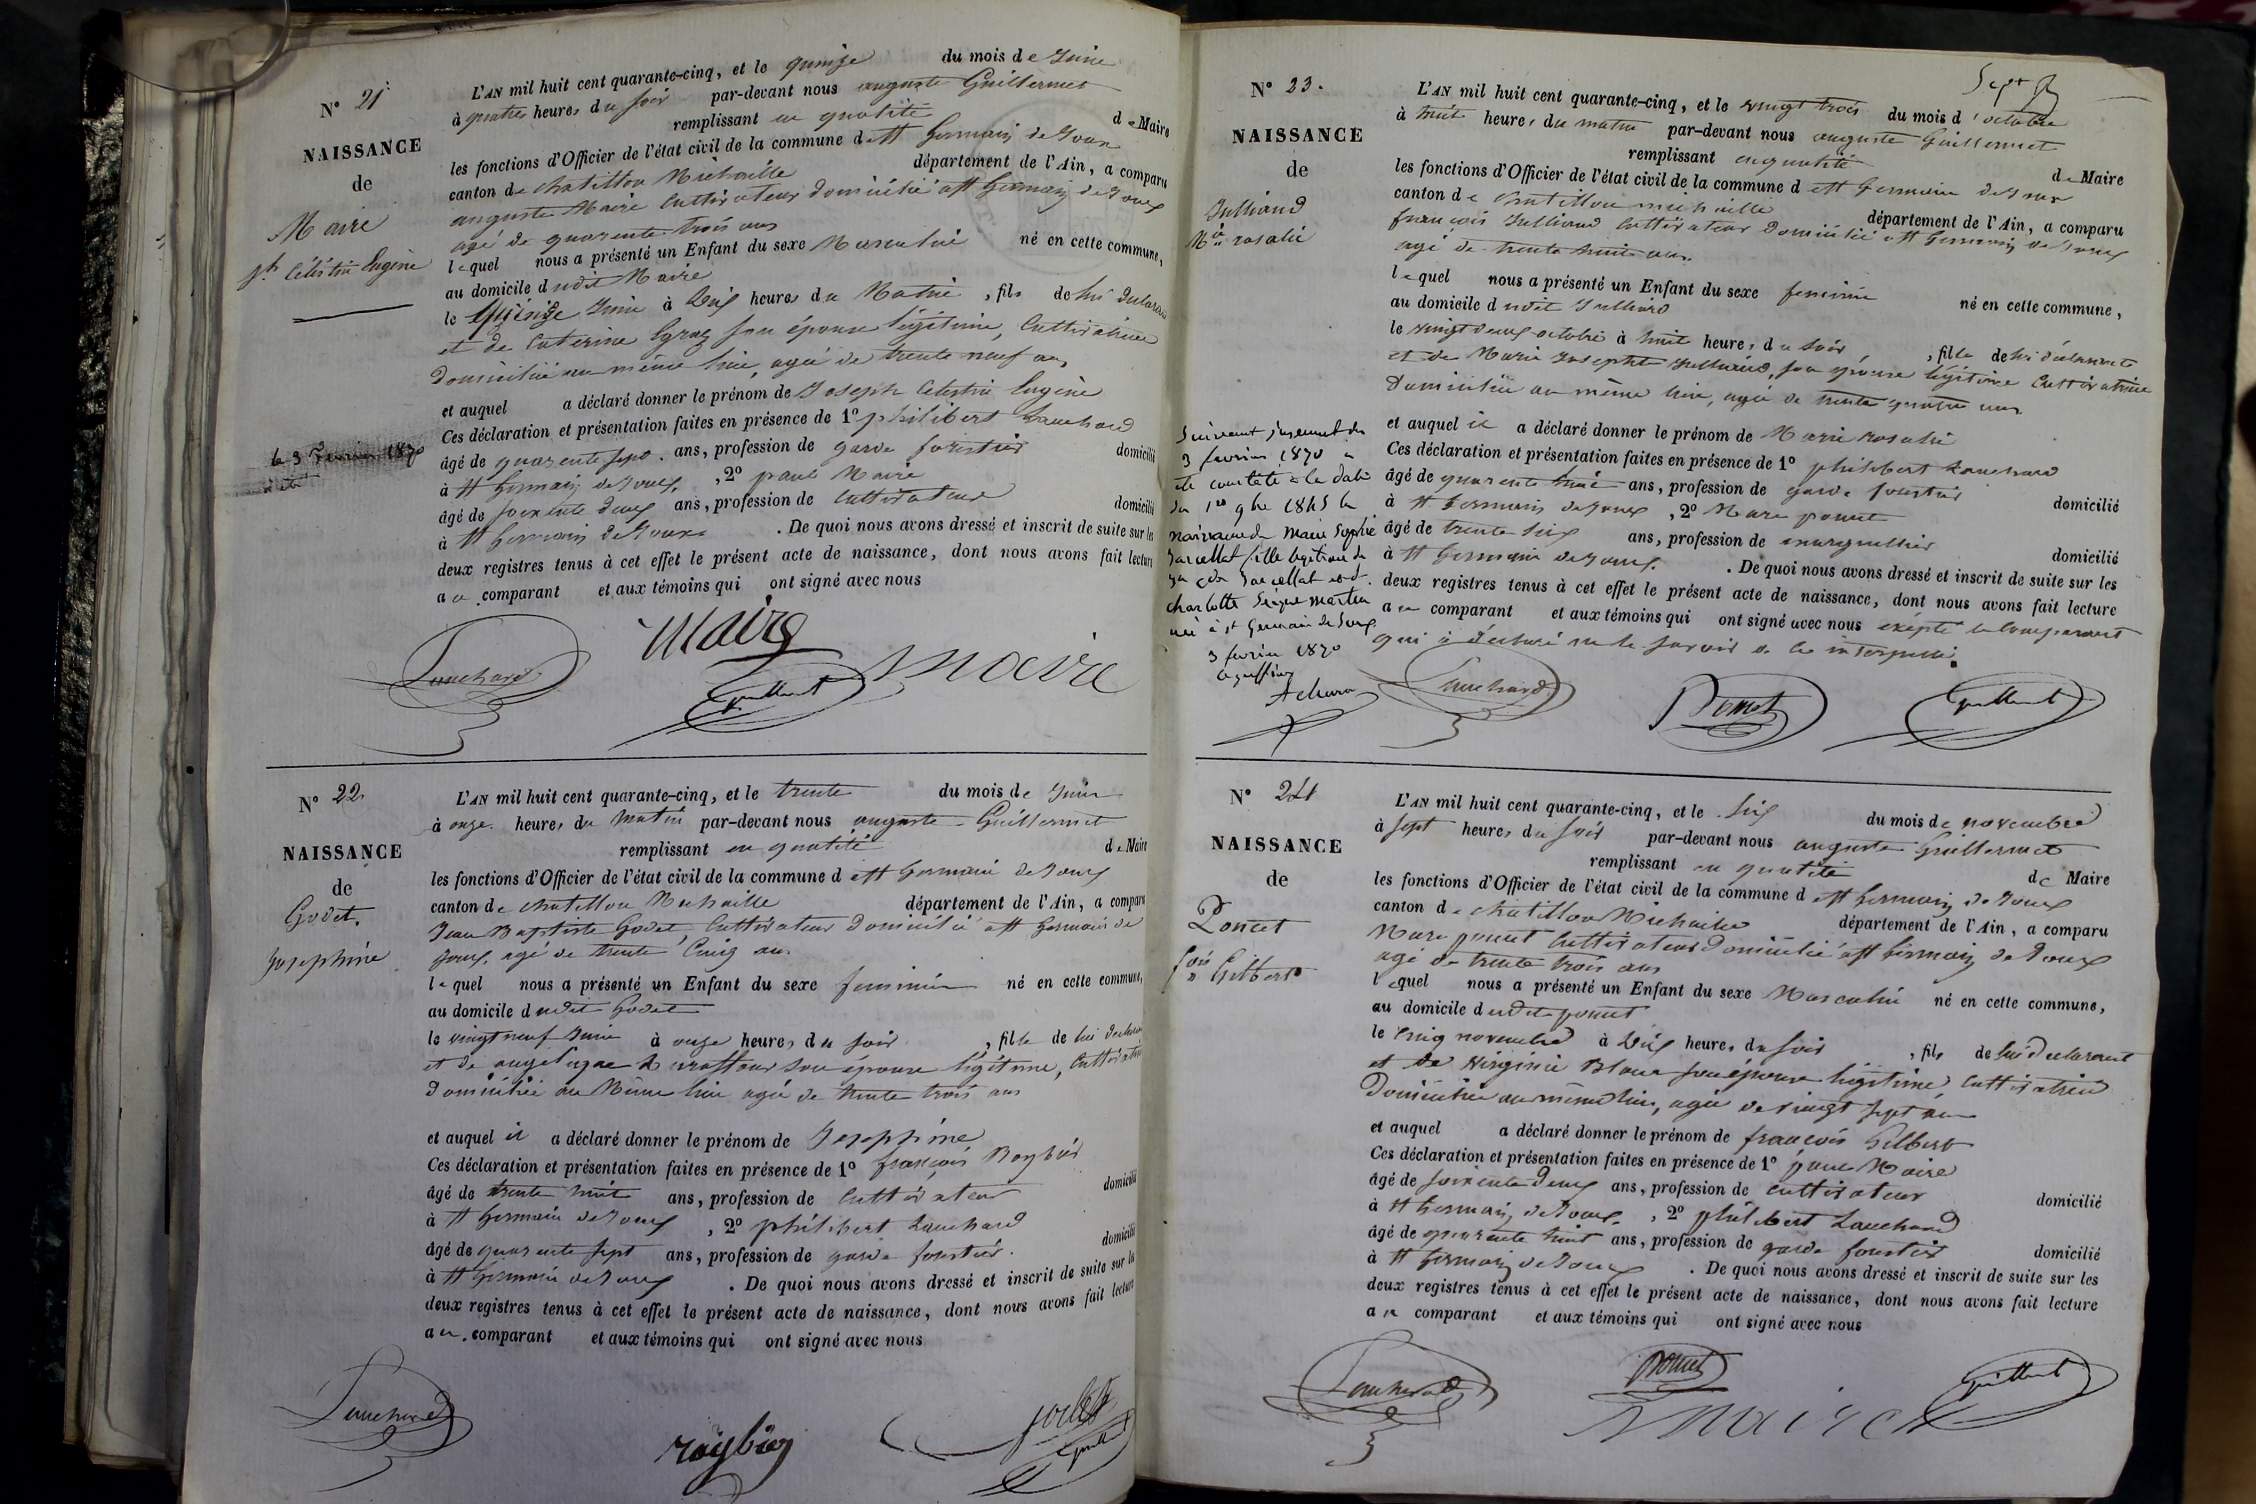 N° 21.
NAISSANCE
de
Maire
jh Célestin Eugène
L'AN mil huit cent quarante-cinq, et le quinze du mois de Juin
à quatre heures du soir par-devant nous auguste Guillermet
remplissant en qualité de Maire
les fonctions d'Officier de l'état civil de la commune de St Germain de Joux
canton de Chatillon Michaille département de l'Ain, a comparu
auguste Maire Cultivateur domicilié à St Germain de Joux
agé de quarente trois ans
lequel nous a présenté un Enfant du sexe Masculin né en cette commune,
au domicile dudit Maire
le Quinze Juin à Dix heures du Matin, fils de lui Déclarant
et de Caterine son épouse légitime, Cultivatrice
domiciliée au même lieu, agée de trente neuf ans
et auquel a déclaré donner le prénom de Joseph Célestin Eugène
Ces déclaration et présentation faites en présence de 1° philibert Lanchard
âgé de quarente sept ans, profession de garde forestier domicilié
à St Germain de Joux, 2° paul Maire
âgé de soixente deux ans, profession de Cultivateur domicilié
à St Germain de Joux. De quoi nous avons dressé et inscrit de suite sur les
deux registres tenus à cet effet le présent acte de naissance, dont nous avons fait lecture
au comparant et aux témoins qui ont signé avec nous
le 3 Février 1870
Maire
Lanchard
Guillermet
Maire
N° 22.
NAISSANCE
de
Godet
Josephine
L'AN mil huit cent quarante-cinq, et le trente du mois de Juin
à onze heures du matin par-devant nous auguste Guillermet
remplissant en qualité de Maire
les fonctions d'Officier de l'état civil de la commune de St Germain de Joux
canton de Chatillon Michaille département de l'Ain, a comparu
Jean Baptiste Godet Cultivateur domicilié à St Germain de
Joux, agé de trente Cinq ans
lequel nous a présenté un Enfant du sexe feminin né en cette commune,
au domicile dudit Godet
le vingt neuf Juin à onze heures du soir, fille de lui déclarant
et de angelique son épouse légitime, Cultivatrice
domiciliée au Même lieu agée de trente trois ans
et auquel il a déclaré donner le prénom de Josephine
Ces déclaration et présentation faites en présence de 1° françois Roybier
âgé de trente huit ans, profession de Cultivateur domicilié
à St Germain de Joux, 2° philibert Lanchard
âgé de quarente sept ans, profession de garde forestier domicilié
à St Germain de Joux. De quoi nous avons dressé et inscrit de suite sur les
deux registres tenus à cet effet le présent acte de naissance, dont nous avons fait lecture
au comparant et aux témoins qui ont signé avec nous
Lanchard
roybier
Guillermet
N° 23.
NAISSANCE
de
Julliand
Mie rosalie
L'AN mil huit cent quarante-cinq, et le vingt trois du mois d'octobre
à huit heures du matin par-devant nous auguste Guillermet
remplissant en qualité de Maire
les fonctions d'Officier de l'état civil de la commune de St Germain de Joux
canton de Chatillon michaille département de l'Ain, a comparu
françois Julliand Cultivateur domicilié à St Germain de Joux
agé de trente huit ans
lequel nous a présenté un Enfant du sexe feminin né en cette commune,
au domicile dudit Julliand
le vingt deux octobre à huit heures du soir, fille de lui déclarant
et de Marie Josephte Julliand, son épouse légitime Cultivatrice
domiciliée au même lieu, agée de trente quatre ans
et auquel il a déclaré donner le prénom de Marie rosalie
Ces déclaration et présentation faites en présence de 1° philibert Lanchard
âgé de quarente huit ans, profession de garde forestier domicilié
à St Germain de Joux, 2° Marc poncet
âgé de trente six ans, profession de domicilié
à St Germain de Joux. De quoi nous avons dressé et inscrit de suite sur les
deux registres tenus à cet effet le présent acte de naissance, dont nous avons fait lecture
au comparant et aux témoins qui ont signé avec nous excepté le Comparant
qui a déclaré ne le savoir de ce interpellé.
Suivant jugement du
3 février 1870 a
été constaté à la date
du 1er 9bre 1845 la
naissance de Marie Sophie
Jarcellat fille légitime de
Jarcellat et d.
charlotte martin
née à St Germain de Joux
3 février 1870
le greffier
Lanchard
Poncet
Guillermet
N° 24
NAISSANCE
de
Poncet
fois Gilbert
L'AN mil huit cent quarante-cinq, et le Six du mois de novembre
à sept heures du soir par-devant nous auguste Guillermet
remplissant en qualité de Maire
les fonctions d'Officier de l'état civil de la commune de St Germain de Joux
canton de Chatillon Michaille département de l'Ain, a comparu
Marc poncet Cultivateur domicilié à St Germain de Joux
agé de trente trois ans
lequel nous a présenté un Enfant du sexe Masculin né en cette commune,
au domicile dudit poncet
le Cinq novembre à Dix heures du soir, fils de lui Déclarant
et de Virginie Blanc son épouse légitime Cultivatrice
Domiciliée au même lieu, agée de vingt sept ans
et auquel a déclaré donner le prénom de françois Gilbert
Ces déclaration et présentation faites en présence de 1° paul Maire
âgé de soixente deux ans, profession de cultivateur domicilié
à St Germain de Joux, 2° philibert Lanchard
âgé de quarente huit ans, profession de garde forestier domicilié
à St Germain de Joux. De quoi nous avons dressé et inscrit de suite sur les
deux registres tenus à cet effet le présent acte de naissance, dont nous avons fait lecture
au comparant et aux témoins qui ont signé avec nous
Lanchard
Poncet
Guillermet
Maire